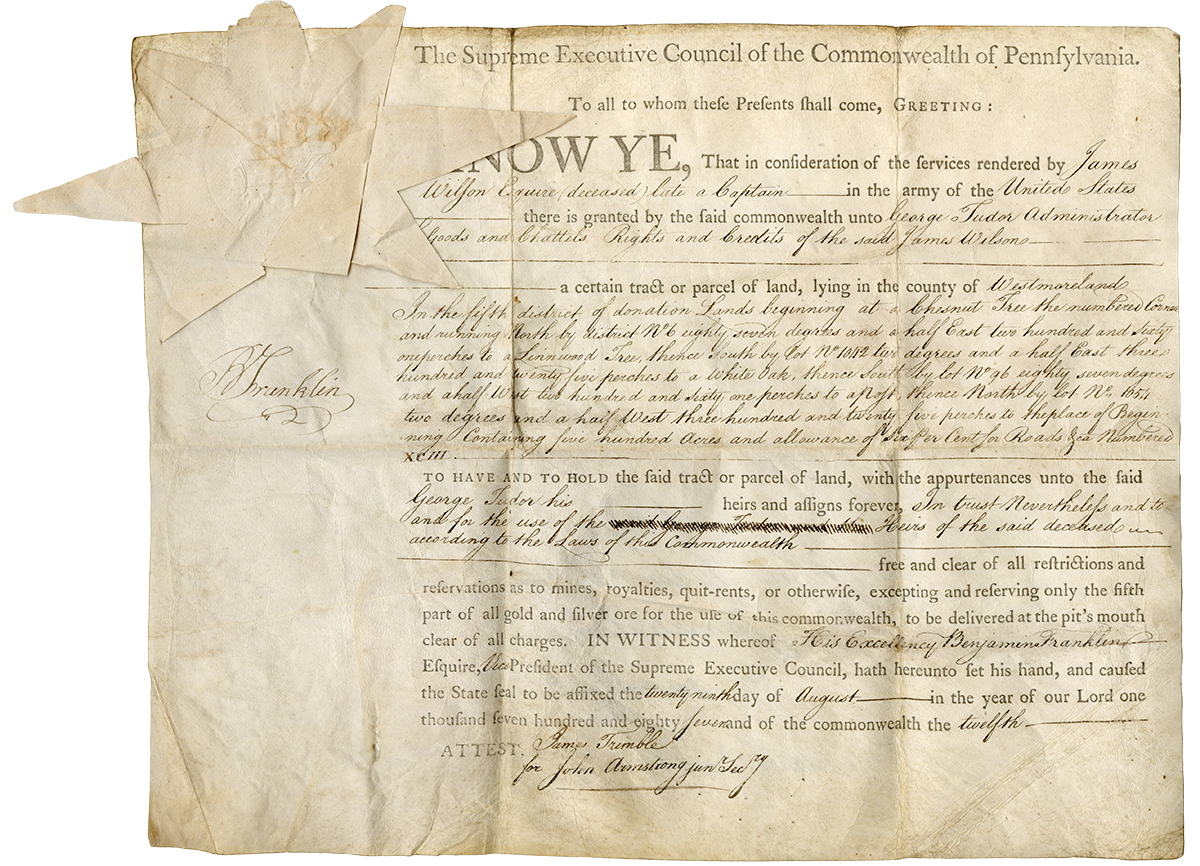 The Supreme Executive Council of the Commonwealth of Pennſylvania.
To all to whom theſe Preſents ſhall come, GREETING:
NOW YE, That in conſideration of the ſervices rendered by James
Wilſon Eſquire, deceased, late a Captain in the army of the United States
there is granted by the ſaid commonwealth unto George Tudor Administrator
Goods and Chattels Rights and Credits of the said James Wilson
a certain tract or parcel of land, lying in the county of Westmoreland
In the fifth district of donation Lands beginning at a Chesnut Tree the numbered Corner
and running North by district No 6 eighty seven degrees and a half East two hundred and Sixty
one perches to a Linnwood Tree, thence South by lot No 1042 two degrees and a half East three
hundred and twenty five perches to a White Oak, thence South by lot No 96 eighty seven degrees
and a half West two hundred and Sixty one perches to a Post, thence North by lot No 1054
two degrees and a half West three hundred and twenty five perches to the place of Begin-
ning Containing five hundred Acres and allowance of Six per Cent for Roads &ca Numbered
XCIII
TO HAVE AND TO HOLD the ſaid tract or parcel of land, with the appurtenances unto the ſaid
George Tudor his heirs and aſſigns forever, In trust Nevertheleſs and to
and for the use of the Heirs of the said deceased
according to the Laws of this Commonwealth
free and clear of all reſtrictions and
reſervations as to mines, royalties, quit-rents, or otherwiſe, excepting and reſerving only the fifth
part of all gold and ſilver ore for the uſe of this commonwealth, to be delivered at the pit's mouth
clear of all charges. IN WITNESS whereof His Excellency Benjamin Franklin
Eſquire, Preſident of the Supreme Executive Council, hath hereunto ſet his hand, and cauſed
the State ſeal to be affixed the twenty ninth day of August in the year of our Lord one
thouſand ſeven hundred and eighty ſeven and of the commonwealth the twelfth
ATTEST. James Trimble
for John Armstrong junr Secry
B Franklin